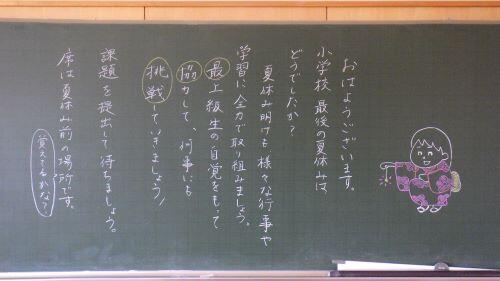 おはようございます。
小学校 最後の夏休みは
どうでしたか?
夏休み明けも様々な行事や
学習に全力で取り組みましょう。
最上級生の自覚をもって
協力して、何事にも
挑戦していきましょう!
課題を提出して待ちましょう。
席は夏休み前の場所です。
覚えてるかな?